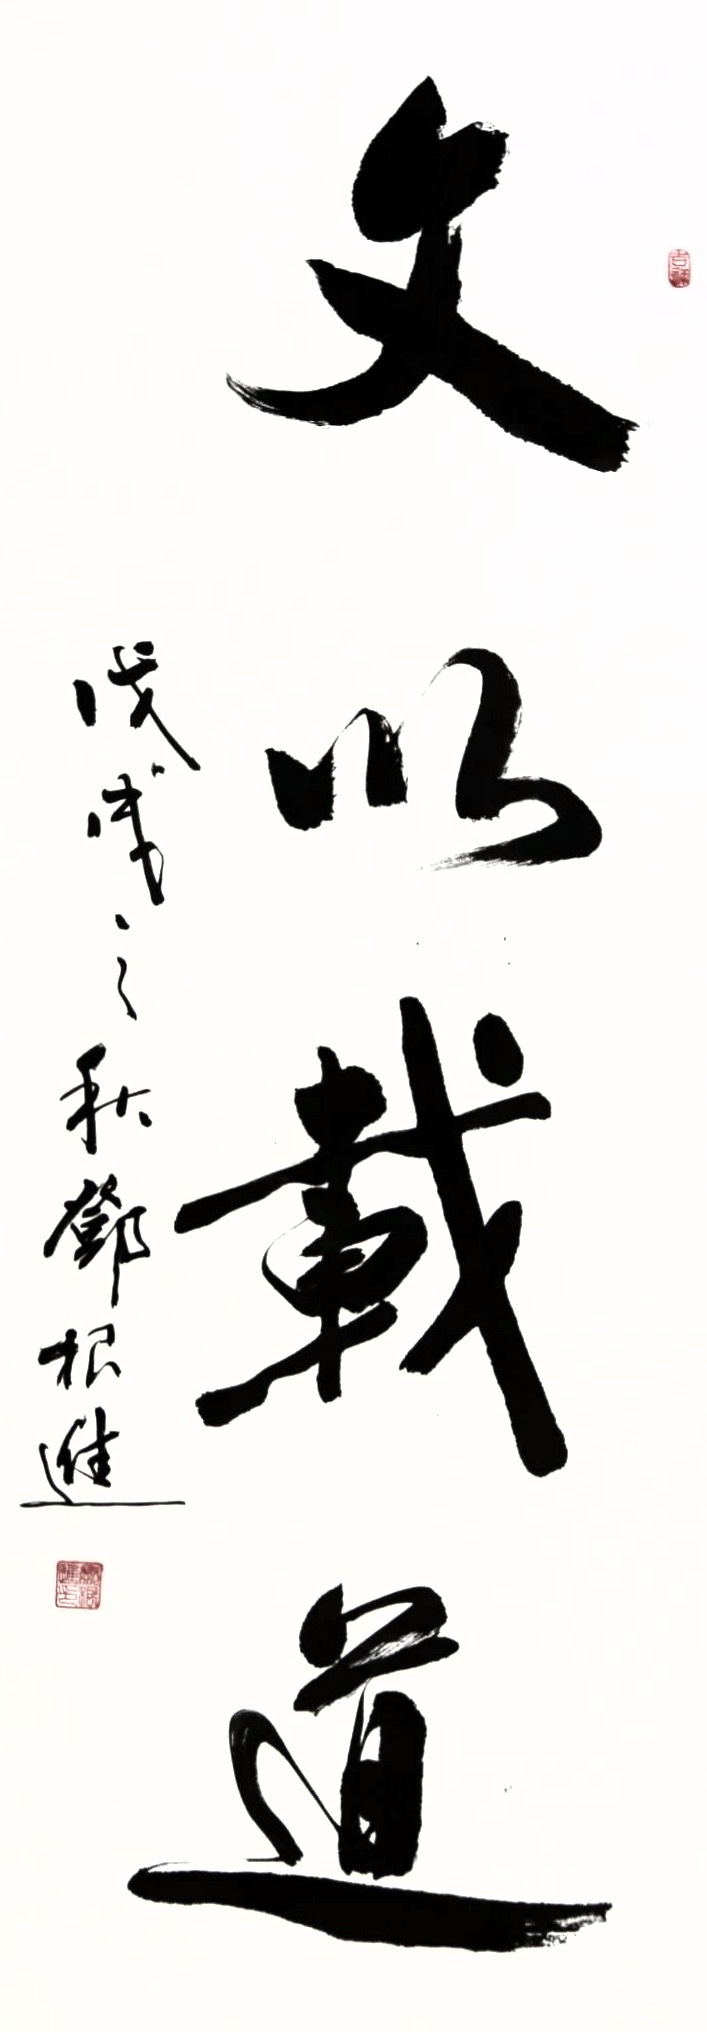 文以載道
戊戌之秋鄧根進